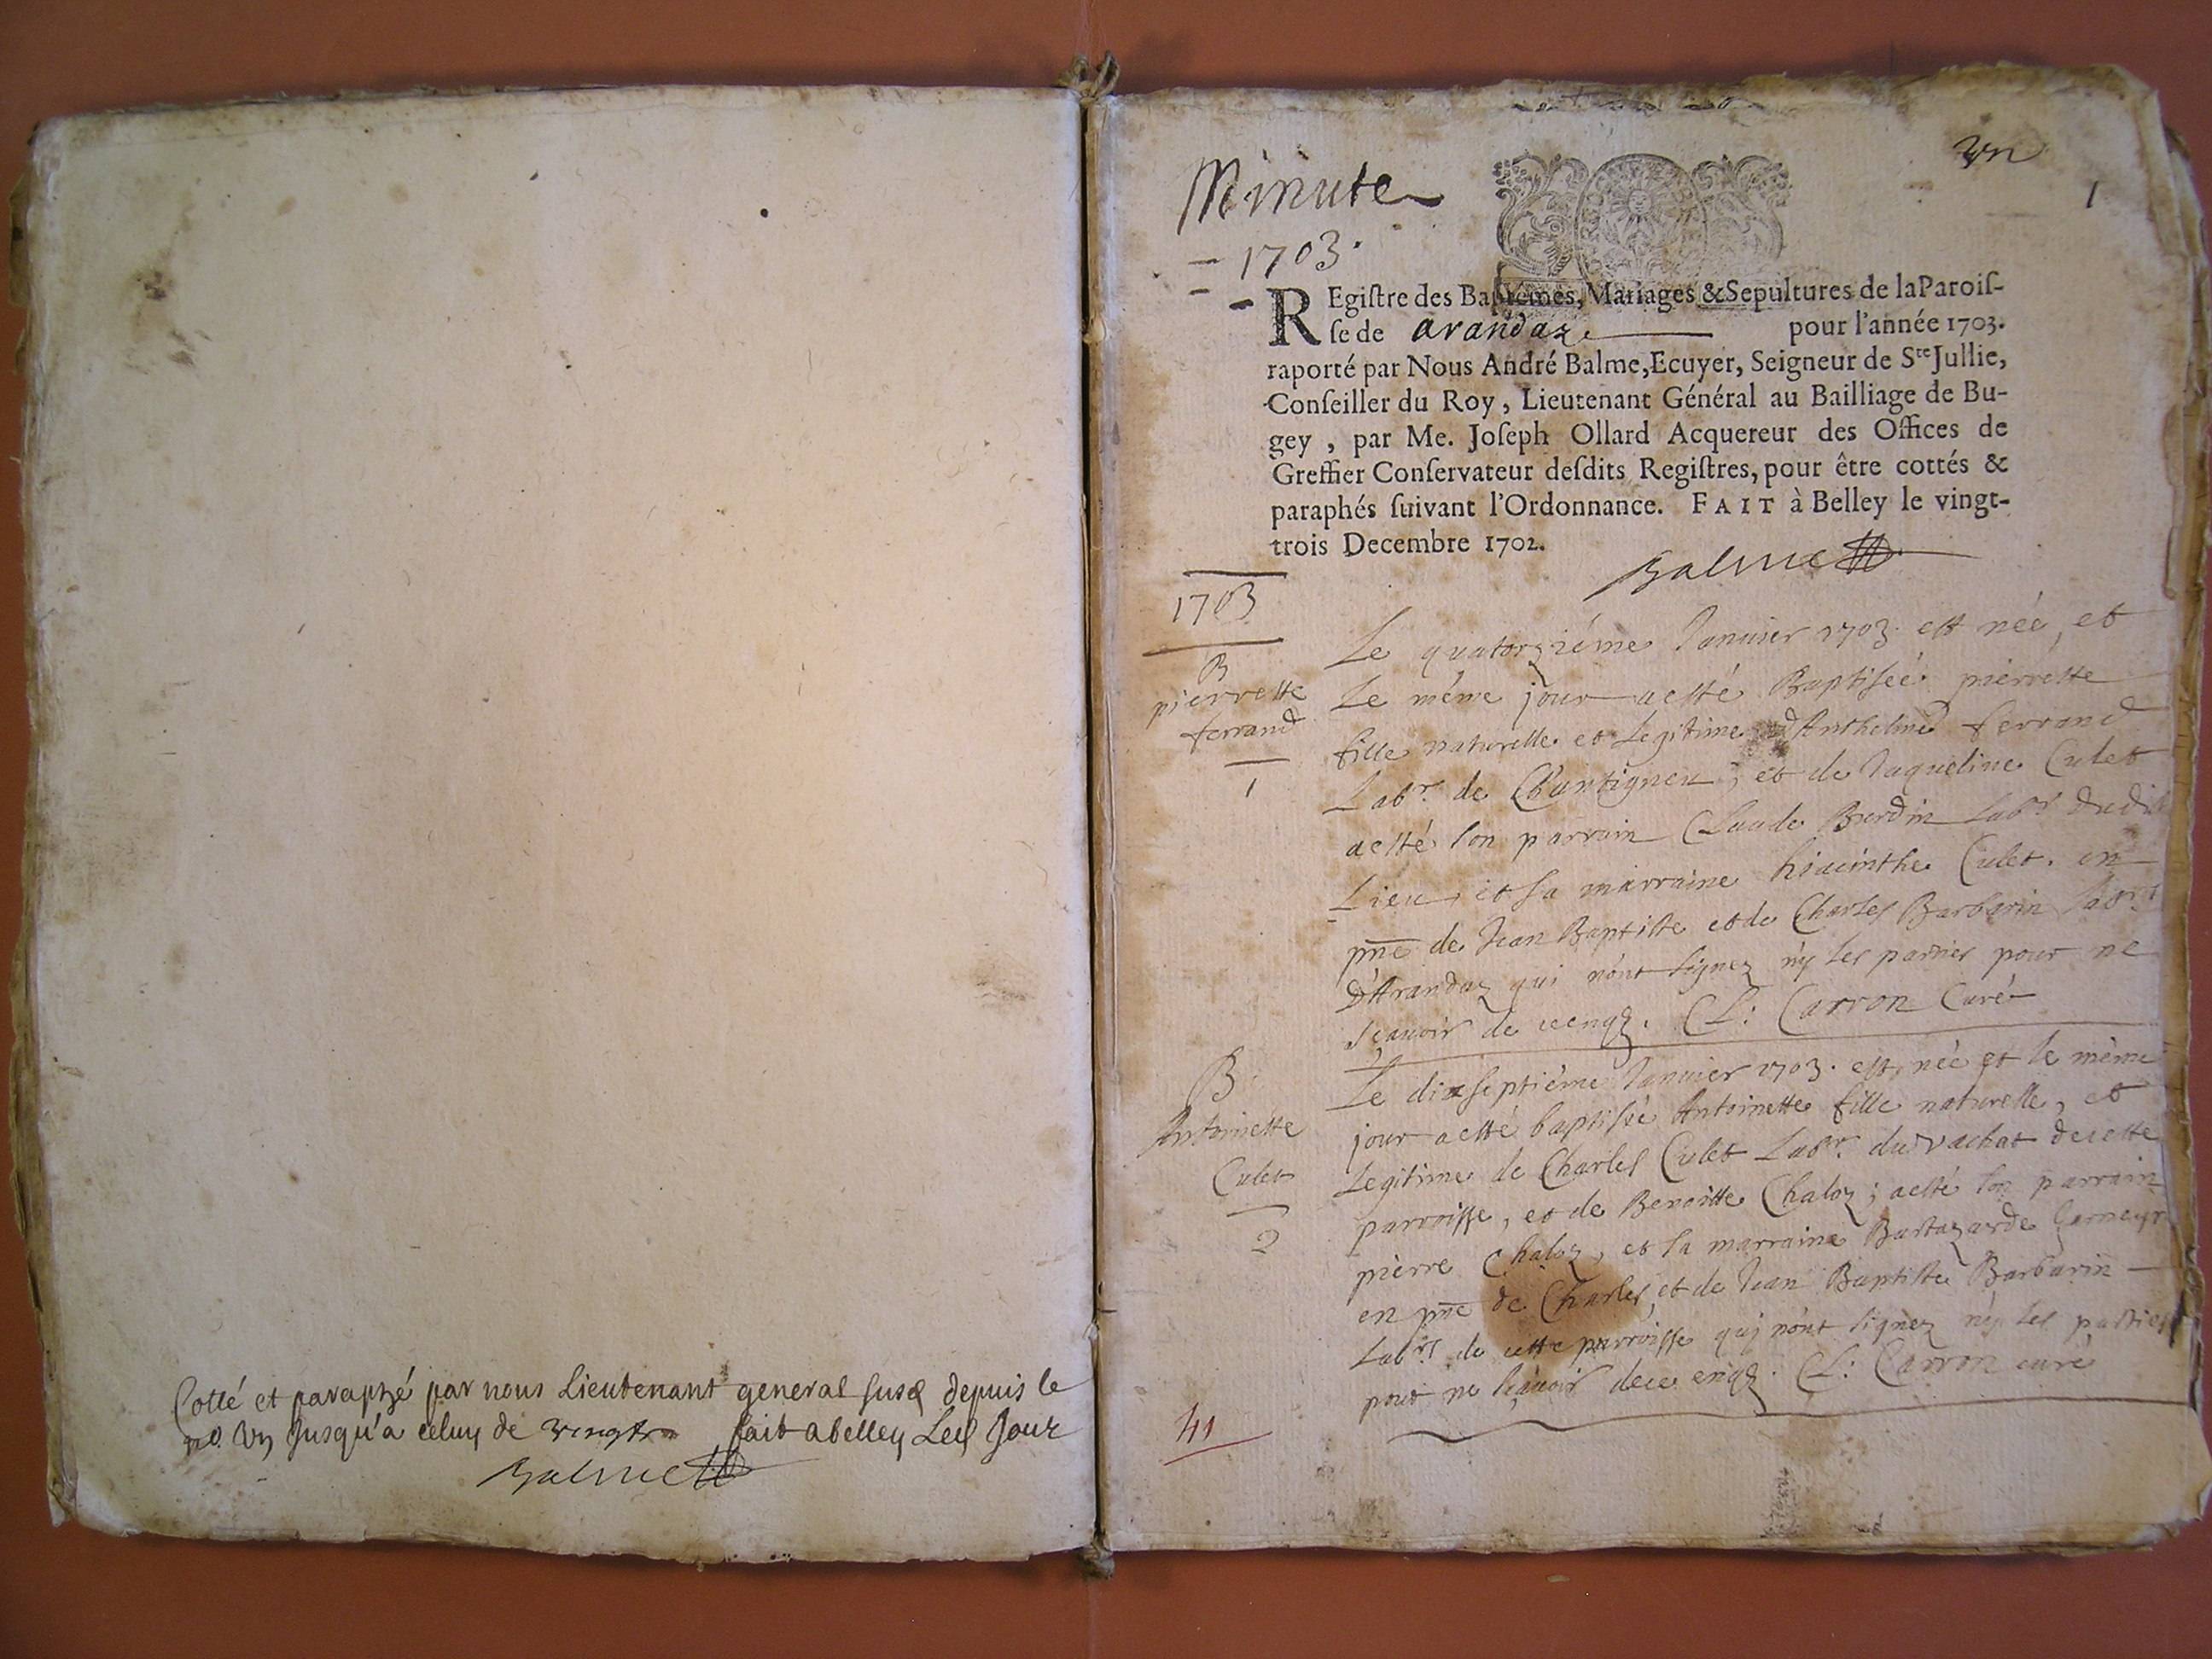 Cotté et paraphé par nous Lieutenant general susd depuis le
no. Un jusqu'a celuy de vingt fait a belley Lesd Jour
Balme
Minute
un
1
- 1703.
REgiſtre des Baptêmes, Mariages & Sepultures de la Paroiſ-
ſe de arandaz pour l'année 1703.
raporté par Nous André Balme, Ecuyer, Seigneur de Ste Jullie,
Conſeiller du Roy, Lieutenant Général au Bailliage de Bu-
gey, par Me. Joſeph Ollard Acquereur des Offices de
Greffier Conſervateur deſdits Regiſtres, pour être cottés &
paraphés ſuivant l'Ordonnance. FAIT à Belley le vingt-
trois Decembre 1702.
Balme
1703
B
pierrette
ferrand
1
Le quatorziéme Janvier 1703. est née, et
Le méme jour a esté Baptisée pierrette
fille naturelle et Legitime d'Anthelme ferrand
Labr. de Chantigneu, et de Jaqueline Culet
a esté son parrain Claude Burdin Labr dudit
Lieu, et sa marraine hiacinthe Culet. en
pnce de Jean Baptiste et de Charles Barbarin Labrs
D'Arandaz qui n'ont signez ny les parties pour ne
sçavoir de ce enqz. Cl: Carron Curé
B
Antoinette
Culet
2
Le dixseptiéme Janvier 1703. est née et le méme
jour a esté baptisée Antoinette fille naturelle, et
Legitime de Charles Culet Labr. du vachat de cette
parroisse, et de Benoitte Chaloz; a esté son parrain
pierre Chaloz, et sa marraine Bartazarde
en pnce de Charles, et de Jean Baptiste Barbarin
Labrs de cette parroisse qui n'ont signez ny les parties
pour ne sçavoir de ce enqz. Cl: Carron curé
41